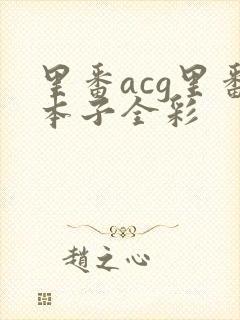 里番acg里番
本子全彩
趙之心